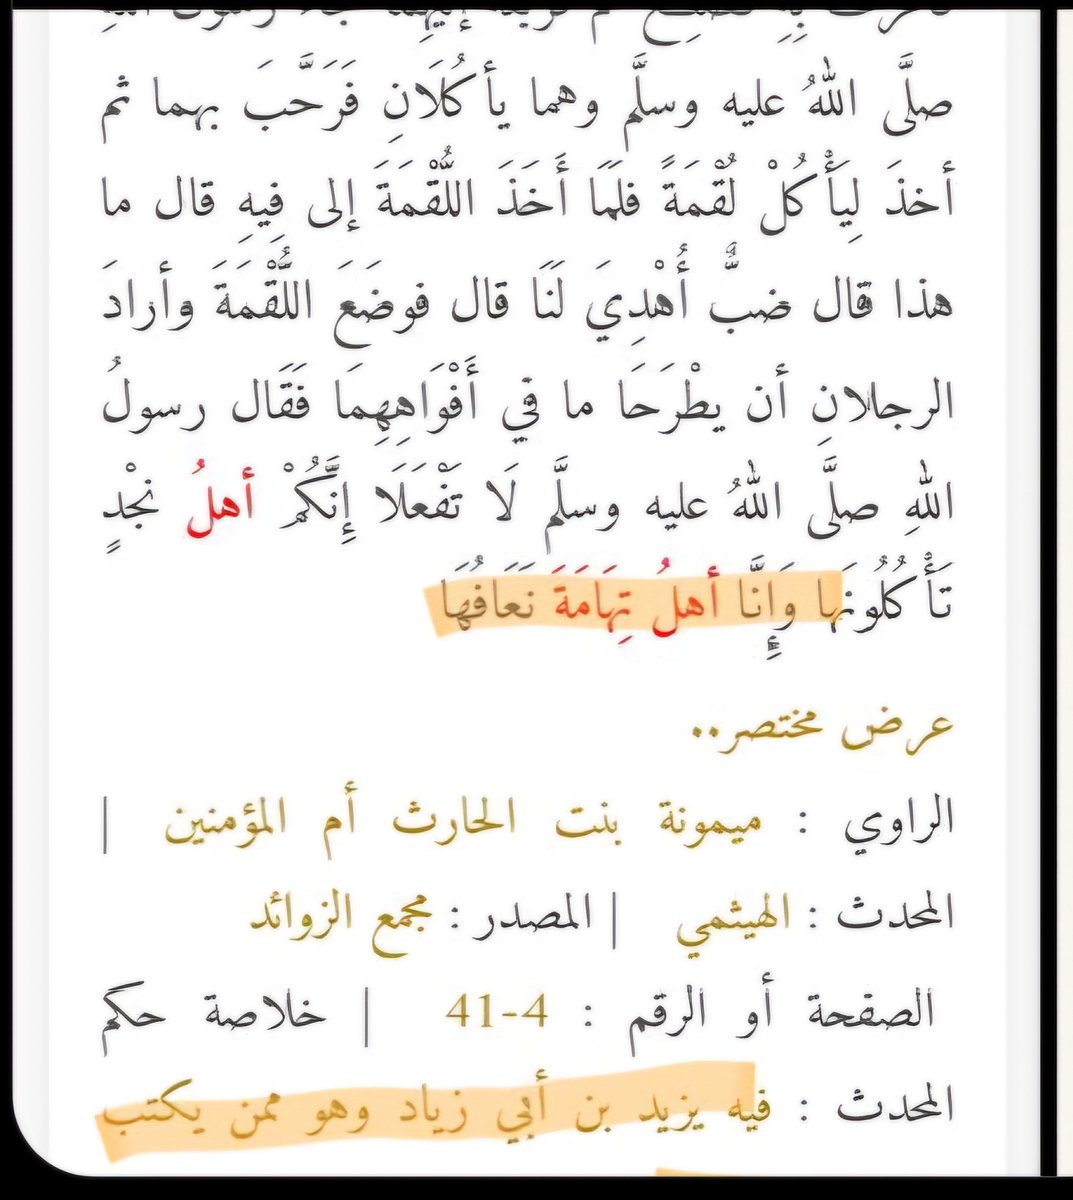 صلَّى اللهُ عليه وسلَّم وهما يأكُلَانِ فَرَحَّبَ بهما ثم
أخذَ لِيَأْكُلْ لُقْمَةً فلَمَا أَخَذَ اللُّقْمَةَ إلى فِيهِ قال ما
هذا قال ضبٌّ أُهْدِيَ لَنَا قال فوضَعَ اللُّقْمَةَ وأرادَ
الرجلانِ أن يطْرَحَا ما في أَفْوَاهِهِمَا فَقَال رسولُ
اللهِ صلَّى اللهُ عليه وسلَّم لَا تَفْعَلَا إِنَّكُمْ أهلُ نجْدٍ
تَأْكُلُونَها وَإِنَّا أهلُ تِهَامَةَ نَعَافُهَا
عرض مختصر..
الراوي : ميمونة بنت الحارث أم المؤمنين |
المحدث : الهيثمي | المصدر : مجمع الزوائد
الصفحة أو الرقم : 4-41 | خلاصة حكم
المحدث : فيه يزيد بن أبي زياد وهو ممن يكتب